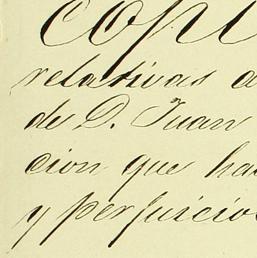 Copi
relativas a
de D. Juan
cion que ha
y perjuicios